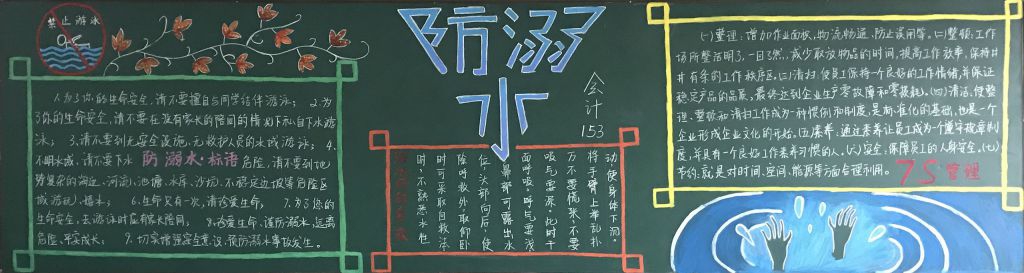 禁止游泳
1.为了你的生命安全,请不要擅自与同学结伴游泳; 2.为
了你的生命安全,请不要在没有家长的陪同的情况下私自下水游
泳; 3.请不要到无安全设施、无救护人员的水域游泳; 4.
不明水域,请不要下水 防溺水·标语 危险,请不要到地
势复杂的海边、河流、池塘、水库、沙坑、不稳定边坡等危险区
域游玩、嬉水; 6.生命只有一次,请珍爱生命; 7.为了您的
生命安全,去游泳时应有家长陪同; 8.珍爱生命、谨防溺水、远离
危险、平安成长; 9.切实增强安全意识、预防溺水事故发生。
防溺水
会计153
动使身体下沉。
将手臂上举乱扑
万不要慌张,不要
吸气要深。此时千
面呼吸。呼气要浅
鼻部可露出水
位,头部向后,使
除呼救外,取仰卧
时可采取自救法
时,不熟悉水性
(一)整理:增加作业面积,物流畅通、防止误用等。(二)整顿:工作
场所整洁明了,一目了然,减少取放物品的时间,提高工作效率,保持井
井有条的工作秩序区。(三)清扫:使员工保持一个良好的工作情绪,并保证
稳定产品的品质,最终达到企业生产零故障和零损耗。(四)清洁:使整
理、整顿和清扫工作成为一种惯例和制度,是标准化的基础,也是一个
企业形成企业文化的开始。(五)素养:通过素养让员工成为一个遵守规章制
度,并具有一个良好工作素养习惯的人。(六)安全:保障员工的人身安全。(七)
节约:就是对时间、空间、能源等方面合理利用。 7S管理